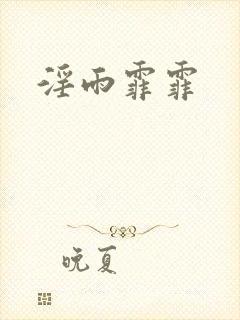 淫雨霏霏
晚夏